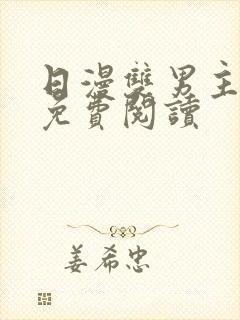 日漫雙男主
免費閱讀
姜希忠